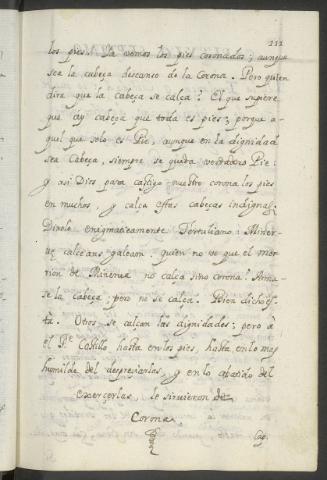 212
los pies. Ya vemos los pies coronados; aunque
sea la cabeça descanso de la Corona. Pero quien
dira que la cabeça se calça? El que supiere
que ay cabeça que toda es pies; porque a-
quel que solo es Pie, aunque en la dignidad
sea Cabeça, siempre se queda verdadero Pie:
y asi Dios para castigo nuestro corona los pies
en muchos, y calça estas cabeças indignas.
Dixolo enigmaticamente Tertuliano: Miner-
va calceans galeam. quien no ve que el mor-
rion de Minerva no calça sino corona? Arma-
se la cabeça; pero no se calça. Bien dicho es-
ta. Otros se calçan las dignidades; pero à
el Pe. Castillo hasta en los pies, hasta en lo mas
humilde del despreciarlas, y en lo abatido del
exercerlas, le sirvieron de
Corona.
Cap.